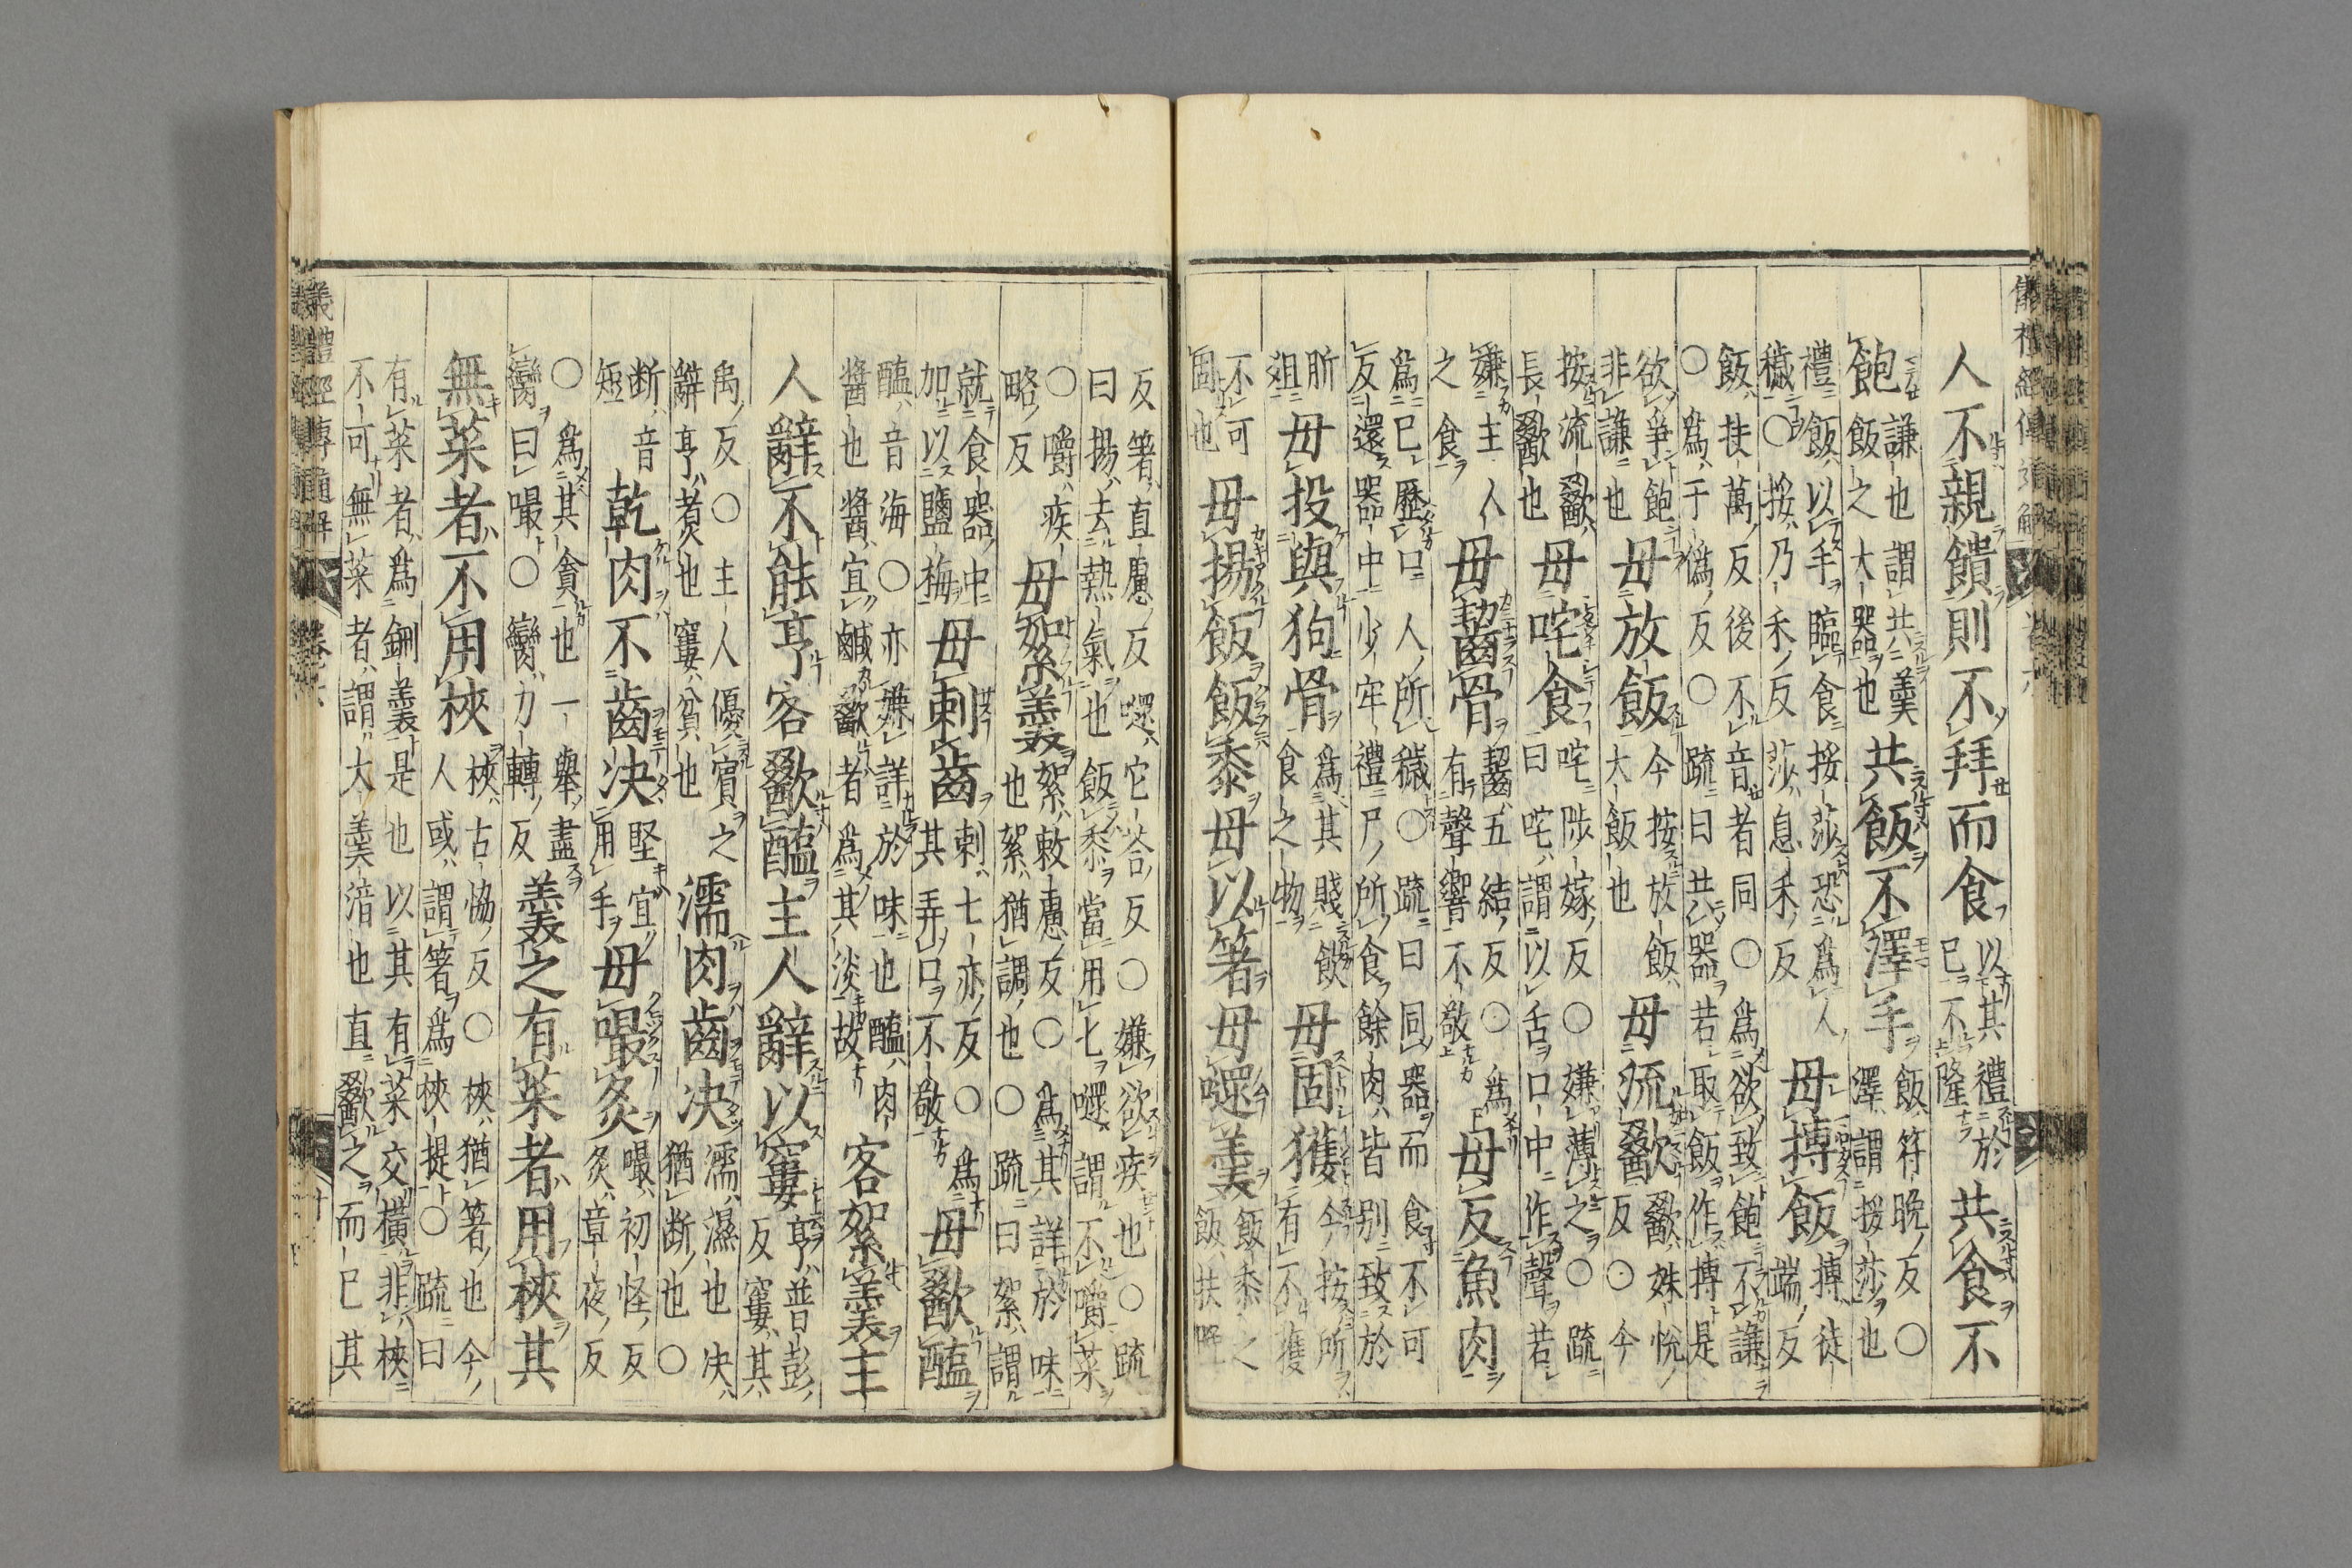 儀禮經傳通解
人不親饋則不拜而食
以其禮於
已不隆
共食不
飽
謙也謂共羹
飯之大器也
共飯不澤手
飯符晚反○
澤謂捼莎也
禮飯以手臨食捼莎恐爲人
穢○捼乃禾反莎息禾反
毋摶飯
摶徒
端反
飯扶萬反後不音者同○爲欲致飽不謙
○爲于僞反○疏曰共器若取飯作摶是
欲爭飽
非謙也
毋放飯
今按放飯
大飯也
毋流歠
歠姝悅
反○今
按流歠
長歠也
毋咤食
咤陟嫁反○嫌薄之○疏
曰咤謂以舌口中作聲若
嫌主人
之食
毋齧骨
齧五結反○爲
有聲響不敬
毋反魚肉
爲已歷口人所穢○疏曰同器而食不可
反還器中少牢禮尸所食餘肉皆别致於
肵
俎
毋投與狗骨
爲其賤飲
食之物
毋固獲
今按所
有不獲
不可
固也
毋揚飯飯黍毋以箸毋嚃羹
飯黍之
飯扶晚
反箸直慮反嚃它荅反○嫌欲疾也○疏
曰揚去熱氣也飯黍當用匕嚃謂不嚼菜
○嚼疾
略反
毋絮羹
絮敕慮反○爲其詳於味
也絮猶調也○疏曰絮謂
就食器中
加以鹽梅
毋刺齒
刺七亦反○爲
其弄口不敬
毋歠醢
醢音海○亦嫌詳於味也醢肉
醬也醬宜鹹歠者爲其淡故
客絮羹主
人辭不能亨客歠醢主人辭以窶
亨普彭
反窶其
禹反○主人優賓之
辭亨煮也窶貧也
濡肉齒决
濡濕也决
猶断也○
断音
短
乾肉不齒决
堅宜
用手
毋嘬炙
嘬初怪反
炙章夜反
○爲其貪也一舉盡
臠曰嘬○臠力轉反
羹之有菜者用梜其
無菜者不用梜
梜古恊反○梜猶箸也今
人或謂箸爲梜提○疏曰
有菜者爲鉶羹是也以其有菜交横非梜
不可無菜者謂大羹湆也直歠之而已其
儀禮經傳通解 卷六 十